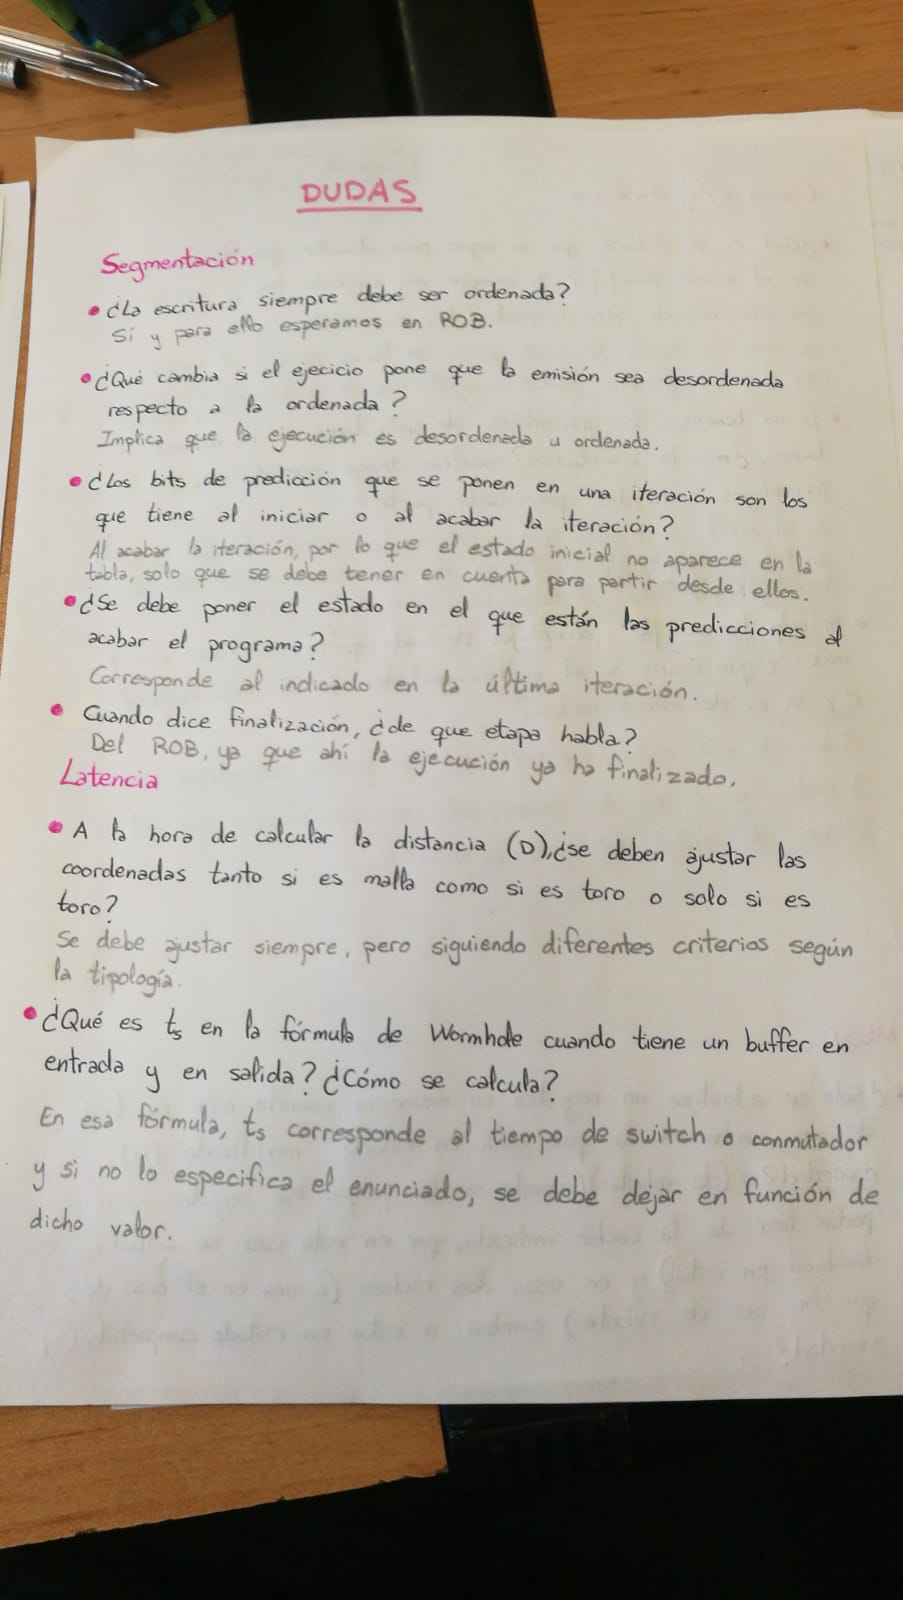 DUDAS
Segmentación
• ¿La escritura siempre debe ser ordenada?
Sí y para ello esperamos en ROB.
• ¿Qué cambia si el ejecicio pone que la emisión sea desordenada
respecto a la ordenada?
Implica que la ejecución es desordenada u ordenada.
• ¿Los bits de predicción que se ponen en una iteración son los
que tiene al iniciar o al acabar la iteración?
Al acabar la iteración, por lo que el estado inicial no aparece en la
tabla, solo que se debe tener en cuenta para partir desde ellos.
• ¿Se debe poner el estado en el que están las predicciones al
acabar el programa?
Corresponde al indicado en la última iteración.
• Cuando dice finalización, ¿de que etapa habla?
Del ROB, ya que ahí la ejecución ya ha finalizado.
Latencia
• A la hora de calcular la distancia (D), ¿se deben ajustar las
coordenadas tanto si es malla como si es toro o solo si es
toro?
Se debe ajustar siempre, pero siguiendo diferentes criterios según
la tipología.
• ¿Qué es ts en la fórmula de Wormhole cuando tiene un buffer en
entrada y en salida? ¿Cómo se calcula?
En esa fórmula, ts corresponde al tiempo de switch o conmutador
y si no lo especifica el enunciado, se debe dejar en función de
dicho valor.